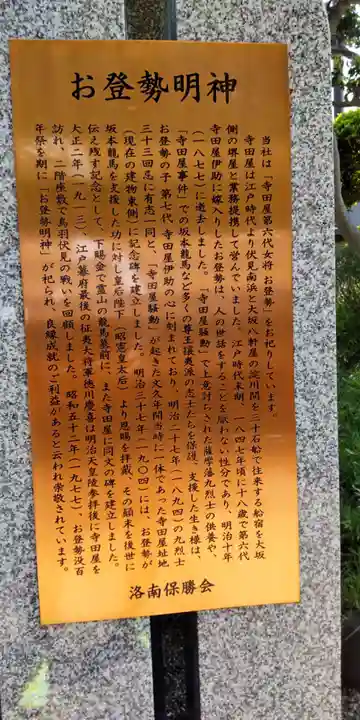 お登勢明神
当社は「寺田屋第六代女将 お登勢」をお祀りしています。
寺田屋は江戸時代より伏見南浜と大坂八軒屋の淀川間を三十石船で往来する船宿を大坂
側の堺屋と業務提携して営んでいました。江戸時代末期、(一八四七年頃に十八歳で第六代
寺田屋伊助に嫁入りしたお登勢は、人の世話をすることを厭わない性分であり、明治十年
(一八七七)に逝去しました。「寺田屋騒動」で上意討ちされた薩摩藩九烈士の供養や、
「寺田屋事件」での坂本龍馬など多くの尊王攘夷派の志士たちを保護、支援した生き様は、
お登勢の子 第七代 寺田屋伊助の心に刻まれており、明治二十七年(一八九四)の九烈士
三十三回忌に有志一同と、「寺田屋騒動」が起きた文久年間当時に一体であった寺田屋址地
(現在の建物東側)に記念碑を建立しました。明治三十七年(一九〇四)には、お登勢が
坂本龍馬を支援した功に対し皇后陛下(昭憲皇太后)より恩賜を拝戴、その顛末を後世に
伝え残す記念として、下賜金で霊山の龍馬墓前に、また寺田屋に同文の碑を建立しました。
大正二年(一九一三)、江戸幕府最後の征夷大将軍徳川慶喜は明治天皇陵参拝後に寺田屋を
訪れ、二階座敷で鳥羽伏見の戦いを回顧しました。昭和五十二年(一九七七)、お登勢没百
年祭を期に「お登勢明神」が祀られ、良縁成就のご利益があると云われ崇敬されています。
洛南保勝会